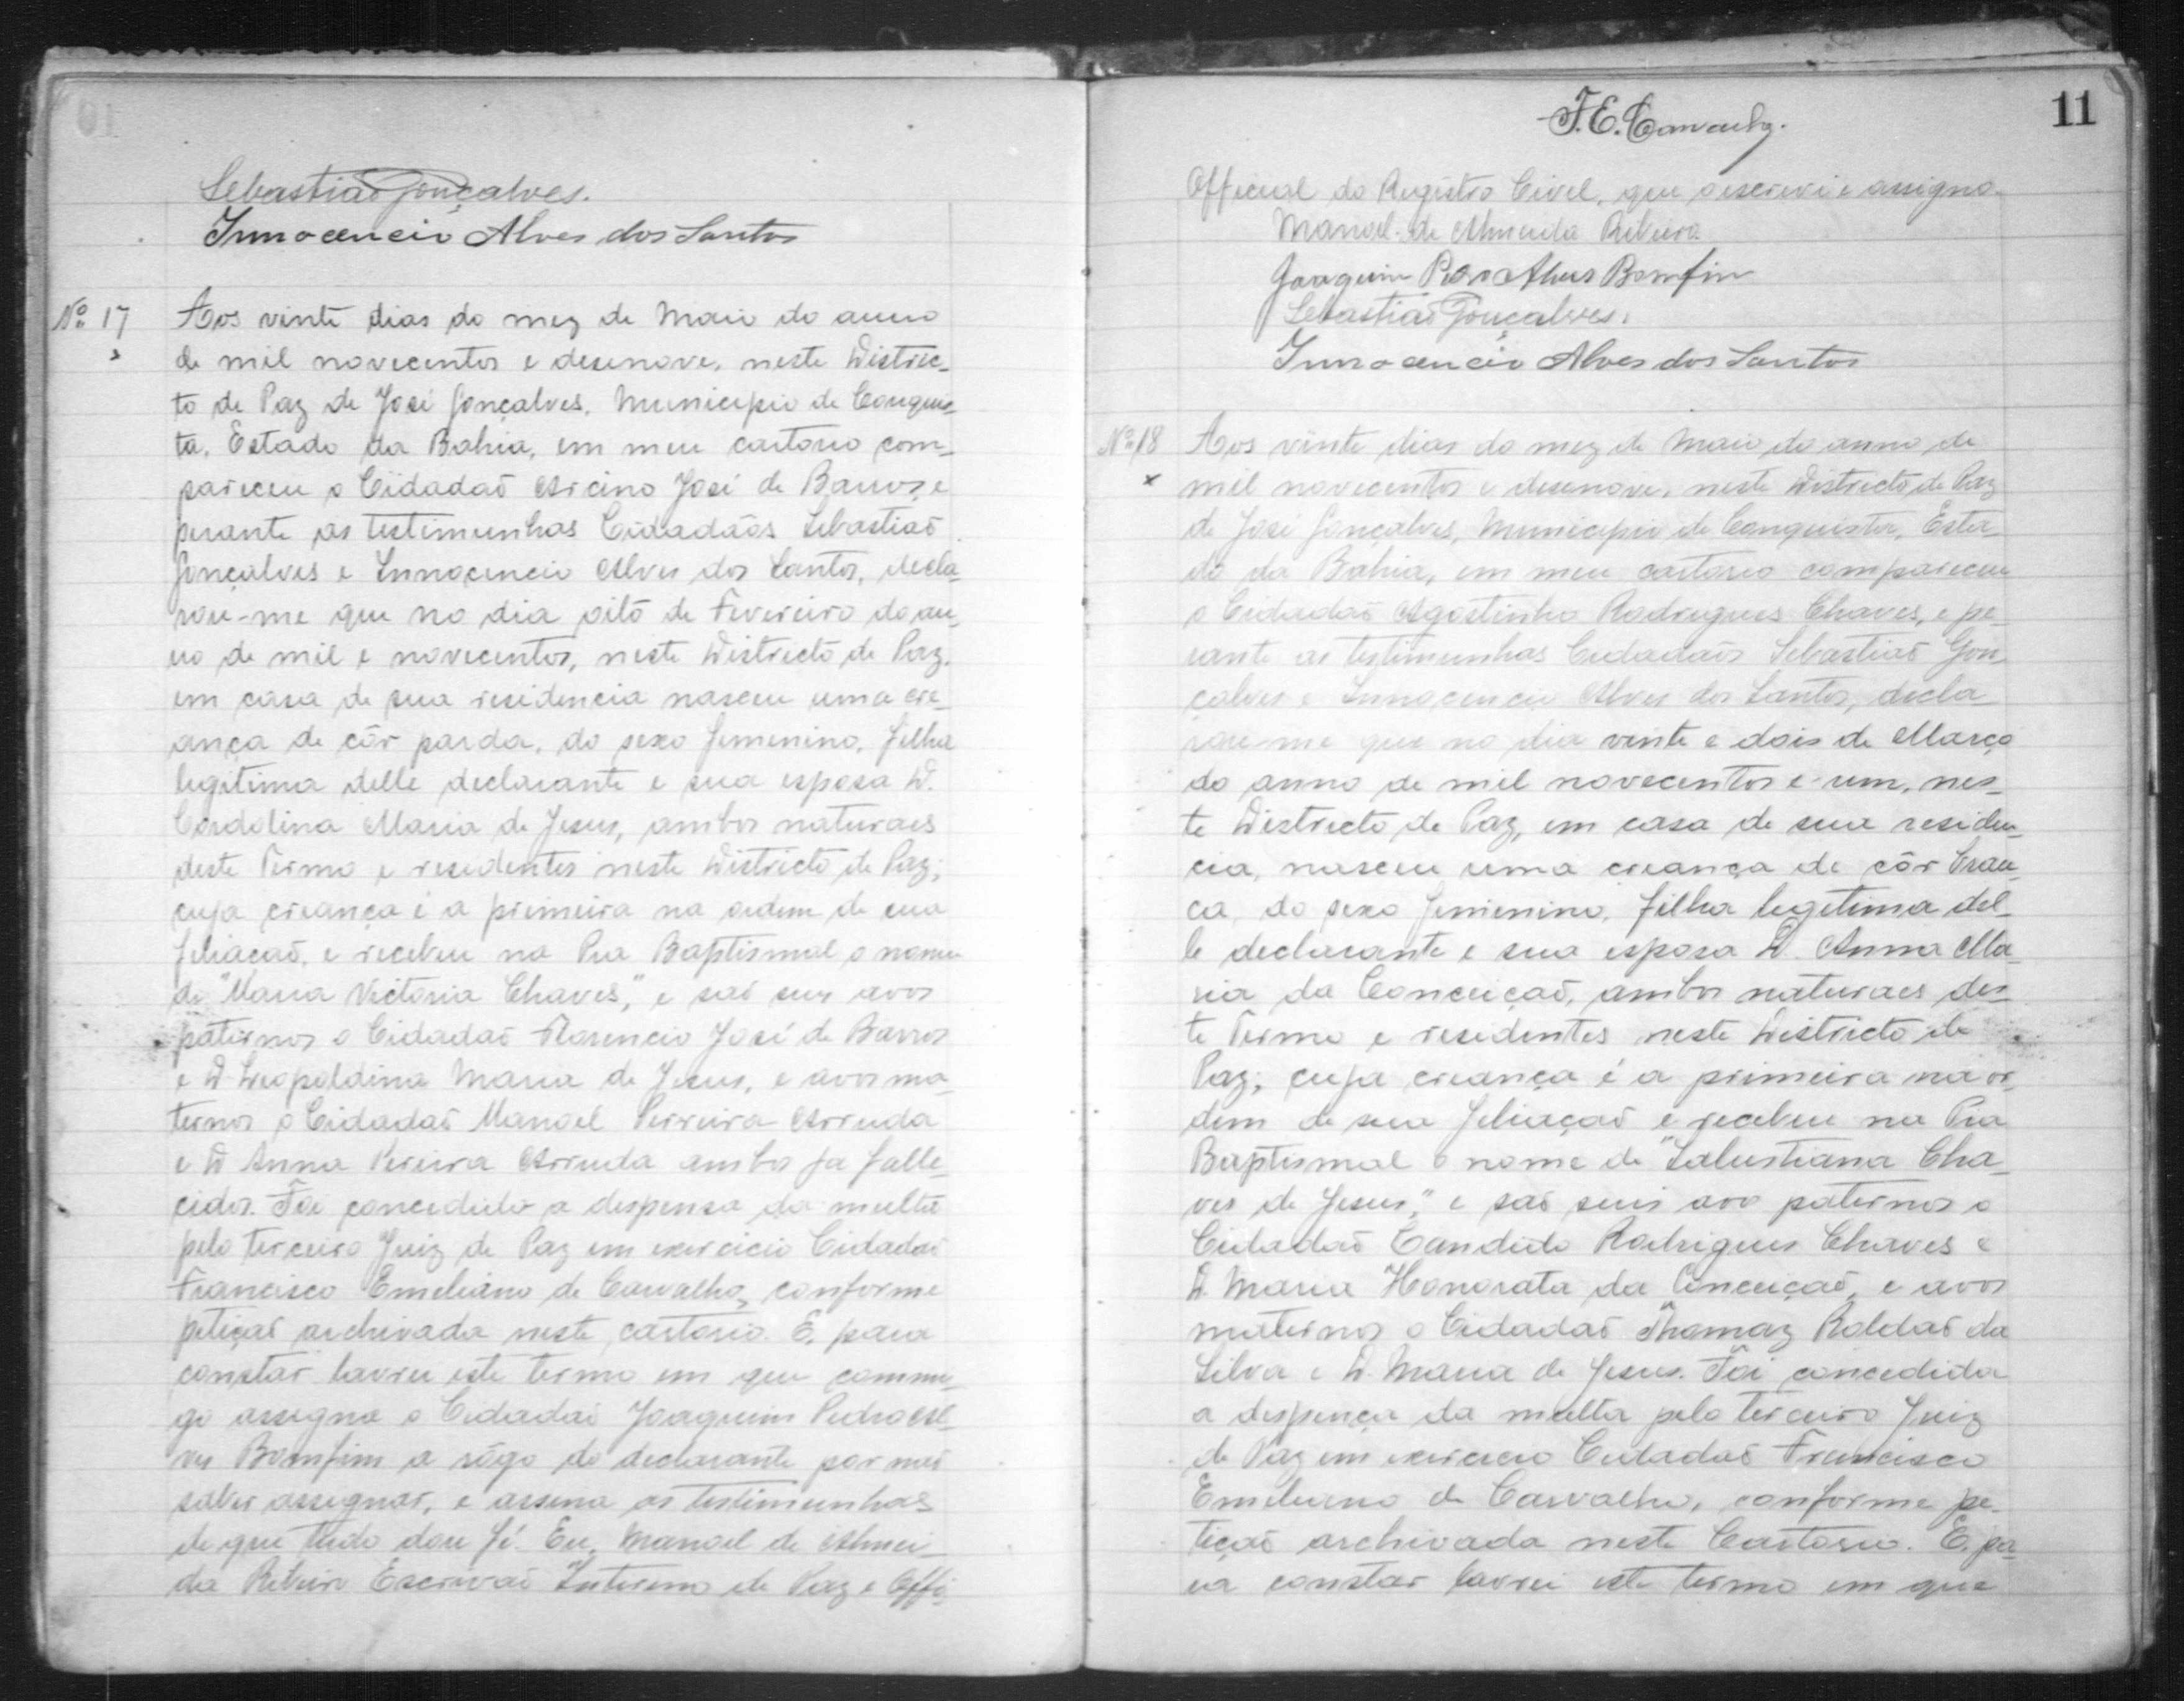 Sebastião Gonçalves.
Innocencio Alves dos Santos
Nº 17
Aos vinte dias do mez de Maio do anno
de mil novecentos e desenove, neste Distric-
to de Paz de José Gonçalves, Municipio de Conquis-
ta, Estado da Bahia, em meu cartorio com-
pareceu o Cidadaõ Arcino José de Barros, e
perante as testimunhas Cidadaõs Sebastiaõ
Gonçalves e Innocencio Alves dos Santos, decla-
rou-me que no dia oito de Fevereiro do an-
no de mil e novecentos, neste Districto de Paz,
em casa de sua residencia nasceu uma cre-
ança de côr parda, do sexo femenino, filha
legitima delle declarante e sua esposa D.
Cordolina Maria de Jesus, ambos naturaes
deste Termo e residentes neste Districto de Paz;
cuja creança é a primeira na ordem de sua
filiaçaõ, e recebeu na Pia Baptismal o nome
de "Maria Victoria Chaves," e saõ seus avos
paternos o Cidadaõ Florencio José de Barros
e D. Leopoldina Maria de Jesus, e avos ma-
ternos o Cidadaõ Manoel Ferreira Arruda
e D. Anna Pereira Arruda ambos ja falle-
cidos. Foi concedido a despensa da multa
pelo terceiro Juiz de Paz em exercicio Cidadaõ
Francisco Emeliano de Carvalho, conforme
petiçaõ archivada neste cartorio. E, para
constar lavrei este termo em que commi-
go assigna o Cidadaõ Joaquim Pedro Al-
ves Bomfim a rôgo do declarante por naõ
saber assignar, e assina as testimunhas
de que tudo dou fé. Eu, Manoel de Almei-
da Ribeiro Escrivaõ Interino de Paz e Offi-
F. E. Carvalho.
11
Official do Registro Civel, que o escrevi e assigno.
Manoel de Almeida Ribeiro.
Joaquim Pedro Alves Bomfim
Sebastião Gonçalves.
Innocencio Alves dos Santos
Nº 18
Aos vinte dias do mez de Maio do anno de
mil novecentos e desenove, neste Districto de Paz
de José Gonçalves, Municipio de Conquista, Esta-
do da Bahia, em meu cartorio compareceu
o Cidadaõ Agostinho Rodrigues Chaves, e pe-
rante as testimunhas Cidadaõs Sebastiaõ Gon-
çalves e Innocencio Alves dos Santos, decla-
rou-me que no dia vinte e dois de Março
do anno de mil novecentos e um, nes-
te Districto de Paz, em casa de sua residen-
cia, nasceu uma creança de côr bran-
ca, do sexo femenino, filha legetima del-
le declarante e sua esposa D. Anna Ma-
ria da Conceiçaõ, ambos naturaes des-
te Termo e residentes neste Districto de
Paz; cuja creança é a primeira na or-
dem de sua filiaçaõ e recebeu na Pia
Baptismal o nome de "Salustiana Cha-
ves de Jesus," e saõ seus avo paternos o
Cidadaõ Candido Rodrigues Chaves e
D. Maria Honorata da Conceiçaõ, e avos
maternos o Cidadaõ Thomaz Roldaõ da
Silva e D. Maria de Jesus. Foi concedida
a despença da multa pelo terceiro Juiz
de Paz em exercicio Cidadaõ Francisco
Emeliano de Carvalho, conforme pe-
tiçaõ archivada neste Cartorio. E, pa-
ra constar lavrei este termo em que